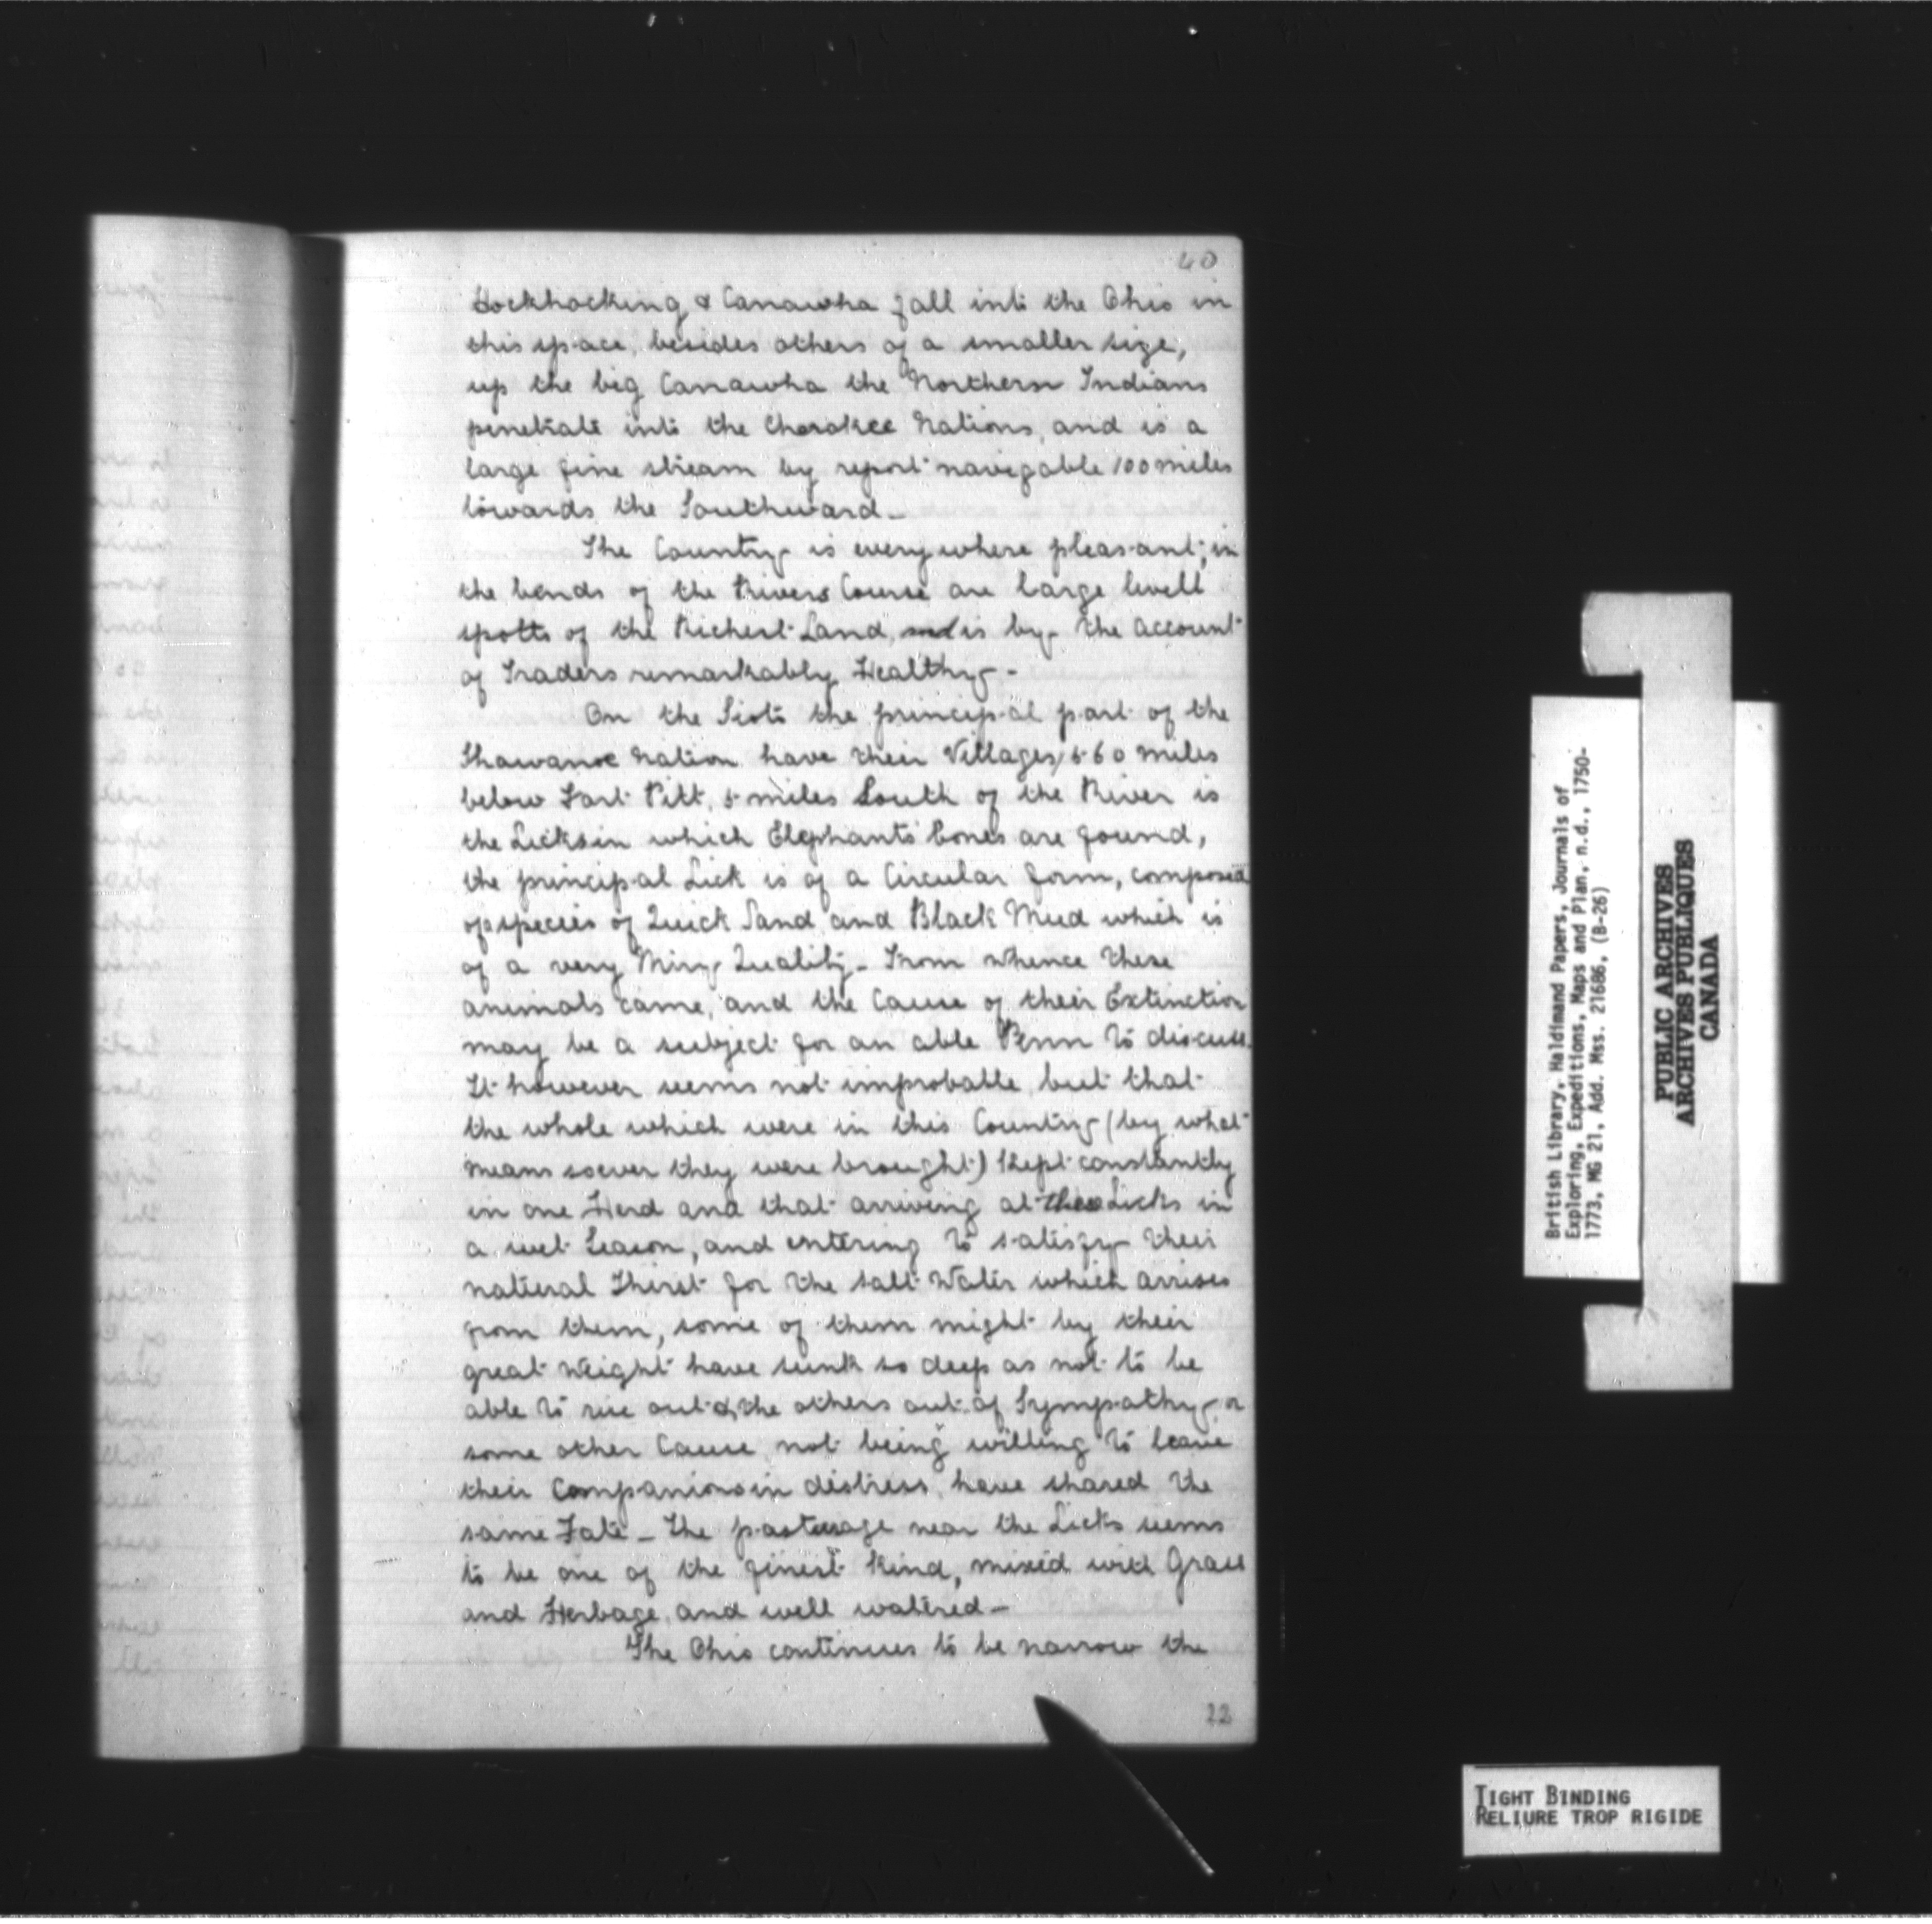 40
Hockhocking & Canawha fall into the Ohio in
this space, besides others of a smaller size,
up the big Canawha the Northern Indians
penetrate into the Cherokee Nations, and is a
large fine stream by report navigable 100 miles
towards the Southward_
The Country is everywhere pleasant; in
the bends of the Rivers Course are large levell
spotts of the Richest Land, and is by the account
of Traders remarkably Healthy -
On the Sioto the principal part of the
Shawanoe Nation have their Villages, 560 miles
below Fort Pitt, 5 miles South of the River is
the Licks in which Elephants bones are found,
the principal Lick is of a Circular form, composed
of species of Quick Sand and Black Mud which is
of a very Miry Quality_ From whence these
animals came, and the Cause of their Extinction
may be a subject for an able Penn to discuss.
It however seems not improbable but that
the whole which were in this Country (by what
means soever they were brought) Kept constantly
in one Herd and that arriving at these Licks in
a wet Season, and entering to satisfy their
natural Thirst for the salt Water which arrises
from them, some of them might by their
great weight have sunk so deep as not to be
able to rise out & the others out of Sympathy or
some other Cause, not being willing to leave
their Companions in distress, have shared the
same Fate_ The pasturage near the Licks seems
to be one of the finest Kind, mixed with Grass
and Herbage, and well watered_
The Ohio continues to be narrow the
22
British Library, Haldimand Papers, Journals of
Exploring, Expeditions, Maps and Plan, n.d., 1750-
1773, MG 21, Add. Mss. 21686, (B-26)
PUBLIC ARCHIVES
ARCHIVES PUBLIQUES
CANADA
TIGHT BINDING
RELIURE TROP RIGIDE